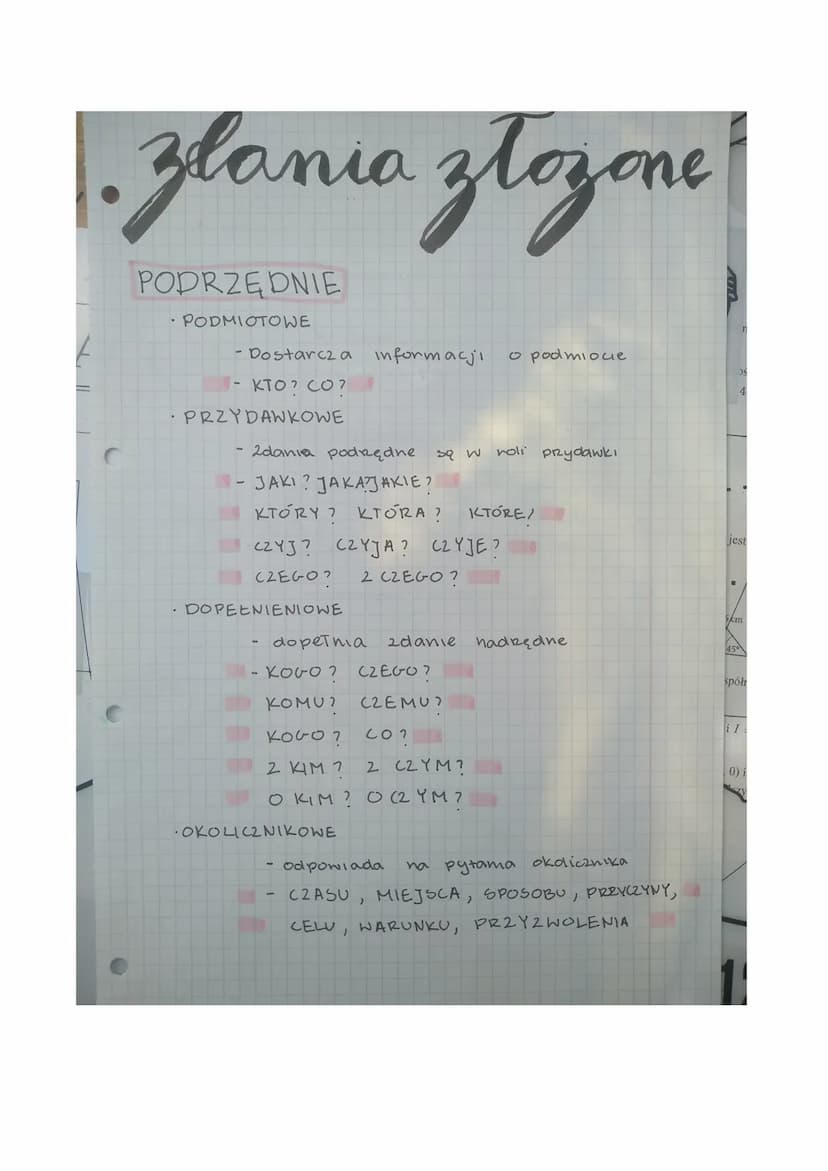 zdania złożone
PODRZĘDNIE
· PODMIOTOWE
- Dostarcza informacji o podmiocie
- KTO? CO?
· PRZYDAWKOWE
- zdania podrzędne są w roli przydawki
- JAKI? JAKA? JAKIE?
KTÓRY? KTÓRA? KTÓRE?
CZYJ? CZYJA? CZYJE?
CZEGO? Z CZEGO?
· DOPEŁNIENIOWE
- dopełnia zdanie nadrzędne
- KOGO? CZEGO?
KOMU? CZEMU?
KOGO? CO?
Z KIM? Z CZYM?
O KIM? O CZYM?
· OKOLICZNIKOWE
- odpowiada na pytania okolicznika
- CZASU, MIEJSCA, SPOSOBU, PRZYCZYNY,
CELU, WARUNKU, PRZYZWOLENIA
jest
45°